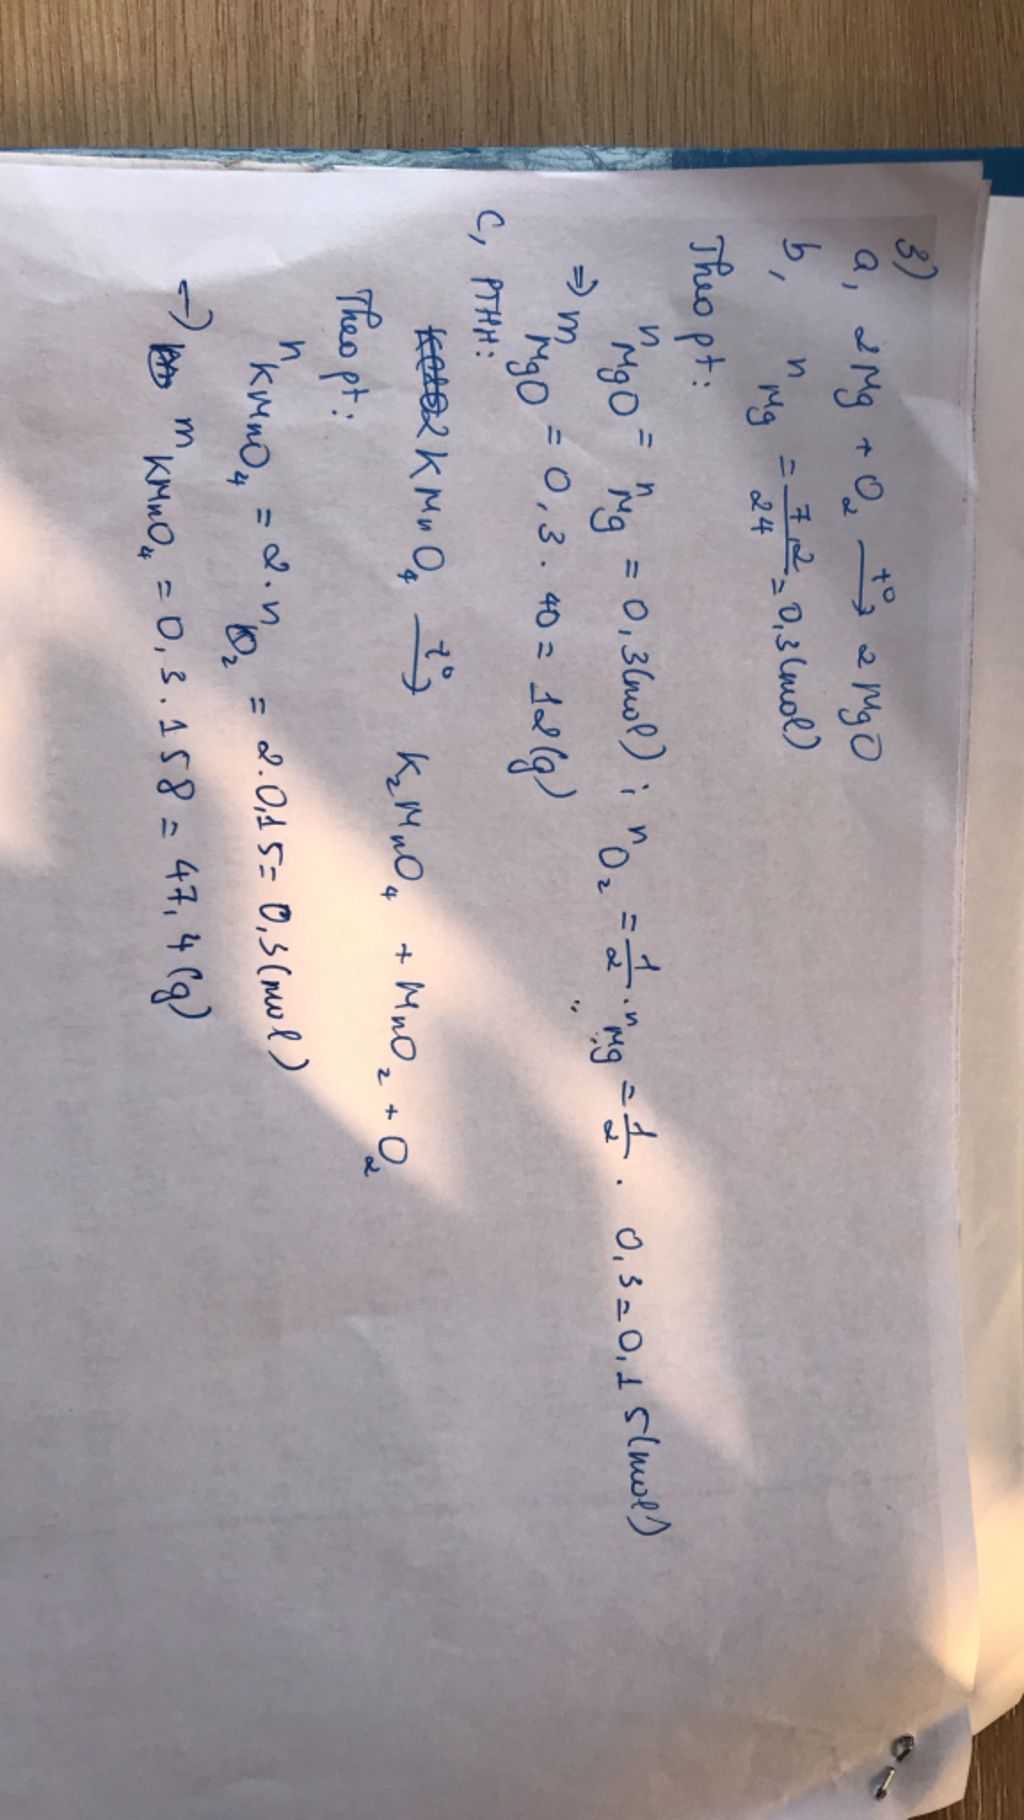 3)
a, 2Mg + O₂ —t⁰→ 2MgO
b, nMg = 7,2/24 = 0,3(mol)
Theo pt:
nMgO = nMg = 0,3(mol) ; nO₂ = 1/2 . nMg = 1/2 . 0,3 = 0,15(mol)
⇒ mMgO = 0,3 . 40 = 12(g)
c, PTHH:
2KMnO₄ —t⁰→ K₂MnO₄ + MnO₂ + O₂
Theo pt:
nKMnO₄ = 2 . nO₂ = 2 . 0,15 = 0,3(mol)
→ mKMnO₄ = 0,3 . 158 = 47,4(g)